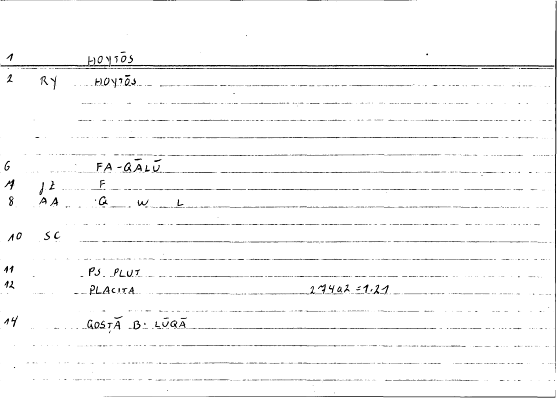 1 HOYTŌS
2 RY HOYTŌS
6 FA-QĀLŪ
7 JZ F
8 AA Q W L
10 SC
11 PS PLUT
12 PLACITA 274a2 = 1.21
14 QOSTĀ B. LŪQĀ